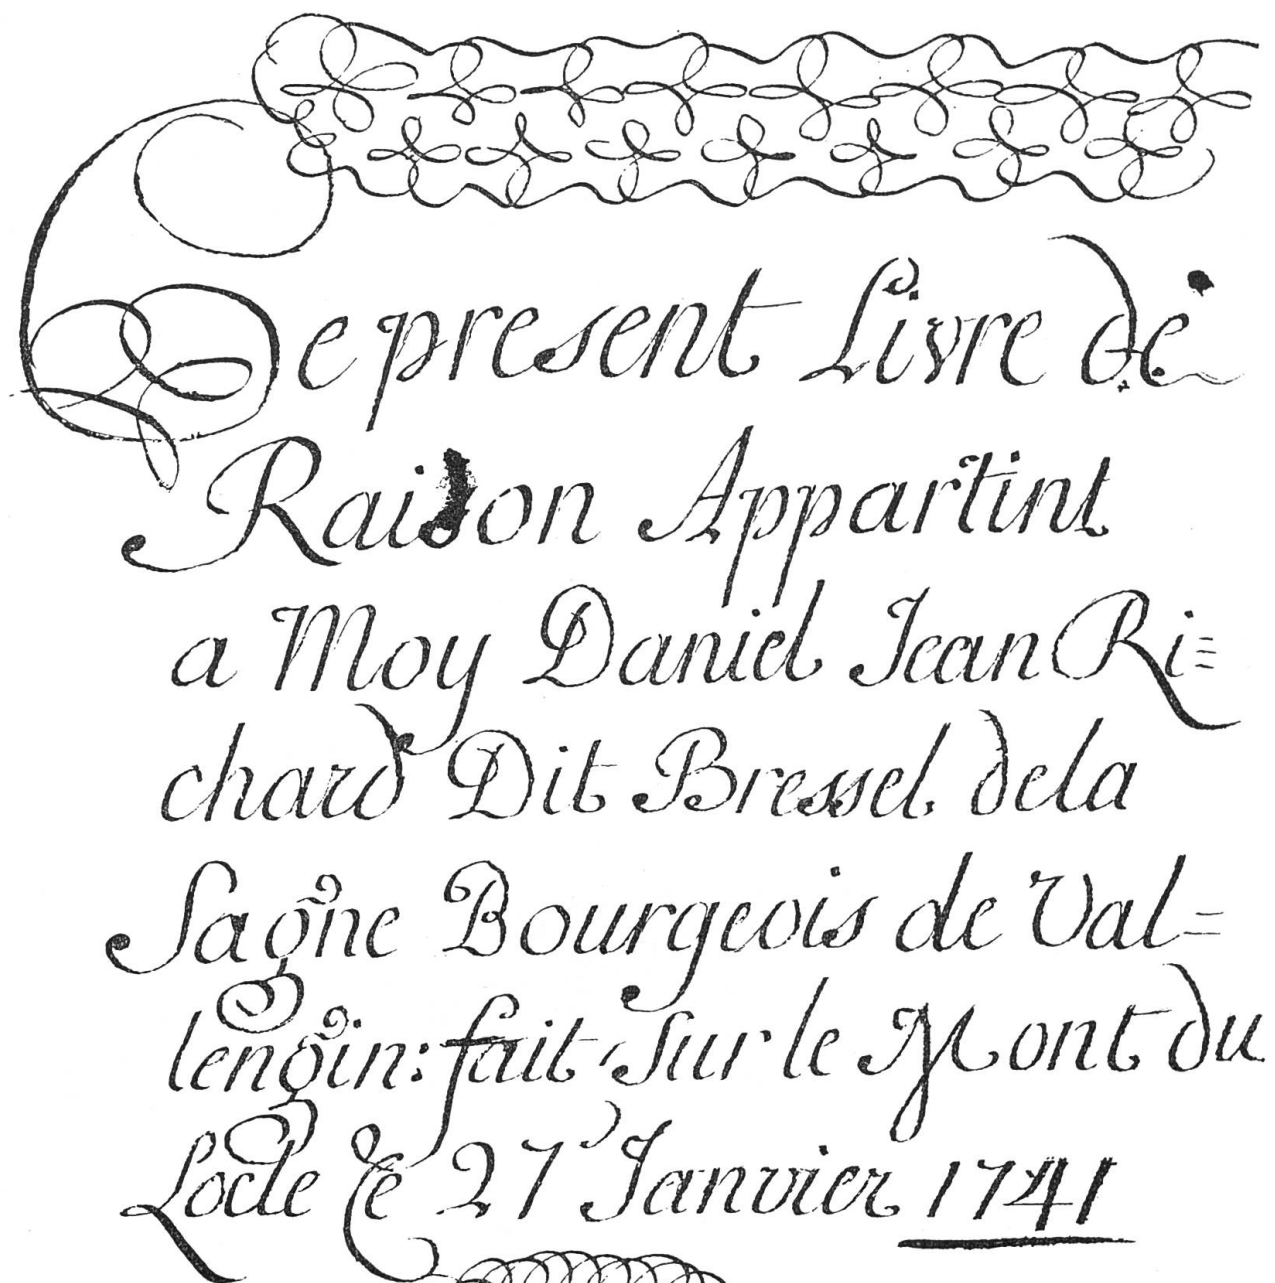 Ce present Livre de
Raison Appartint
a Moy Daniel Jean Ri=
chard Dit Bressel dela
Sagne Bourgeois de Val=
lengin: fait Sur le Mont du
Locle Le 27 Janvier 1741